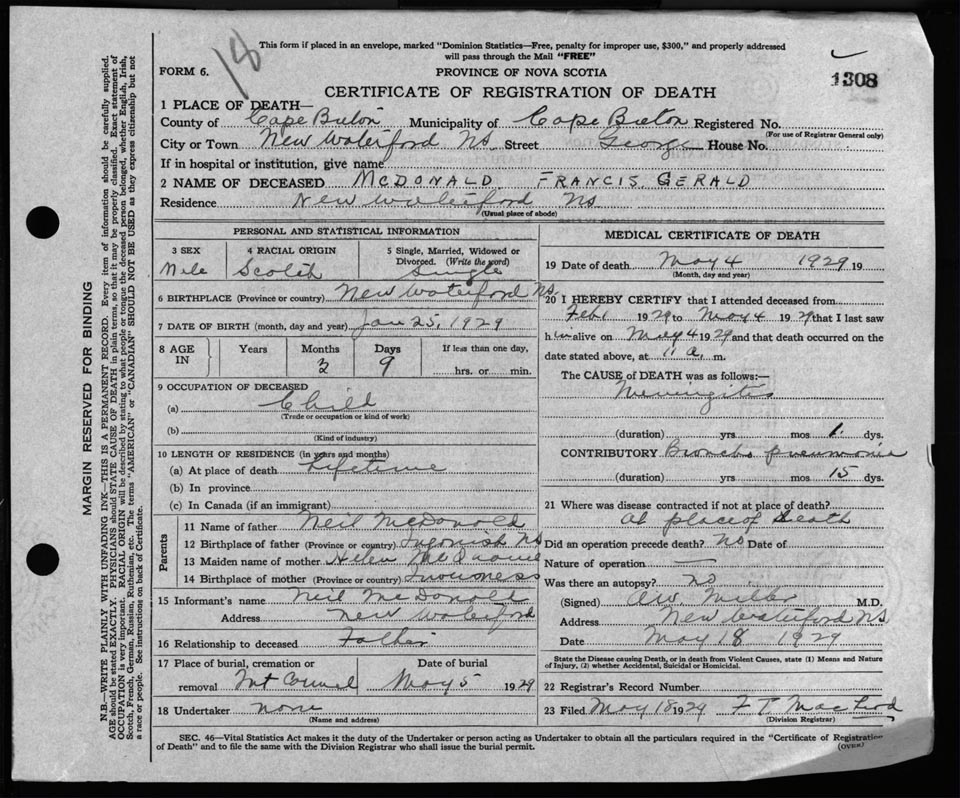 18
This form if placed in an envelope, marked "Dominion Statistics—Free, penalty for improper use, $300," and properly addressed
will pass through the Mail "FREE"
FORM 6.
PROVINCE OF NOVA SCOTIA
1308
CERTIFICATE OF REGISTRATION OF DEATH
1 PLACE OF DEATH—
County of Cape Breton Municipality of Cape Breton Registered No.
(For use of Registrar General only)
City or Town New Waterford NS. Street George House No.
If in hospital or institution, give name
2 NAME OF DECEASED McDONALD FRANCIS GERALD
Residence New Waterford NS
(Usual place of abode)
PERSONAL AND STATISTICAL INFORMATION
3 SEX 4 RACIAL ORIGIN 5 Single, Married, Widowed or
Divorced. (Write the word)
Male Scotch Single
6 BIRTHPLACE (Province or country) New Waterford NS.
7 DATE OF BIRTH (month, day and year) Jan 25, 1929
8 AGE IN Years Months Days If less than one day,
3 9 hrs. or min.
9 OCCUPATION OF DECEASED
(a) Child
(Trade or occupation or kind of work)
(b)
(Kind of industry)
10 LENGTH OF RESIDENCE (in years and months)
(a) At place of death Lifetime
(b) In province
(c) In Canada (if an immigrant)
Parents
11 Name of father Neil McDonald
12 Birthplace of father (Province or country) Ingonish NS
13 Maiden name of mother Helen
14 Birthplace of mother (Province or country) Inverness
15 Informant's name Neil McDonald
Address New Waterford
16 Relationship to deceased Father
17 Place of burial, cremation or Date of burial
removal Mt Carmel May 5 1929
18 Undertaker none
(Name and address)
MEDICAL CERTIFICATE OF DEATH
19 Date of death May 4 1929 19
(Month, day and year)
20 I HEREBY CERTIFY that I attended deceased from
Feb 1 1929 to May 4 1929 that I last saw
him alive on May 4 1929 and that death occurred on the
date stated above, at 11 a. m.
The CAUSE of DEATH was as follows:—
Meningitis
(duration) yrs mos 1. dys.
CONTRIBUTORY Broncho pneumonia
(duration) yrs. mos 15 dys.
21 Where was disease contracted if not at place of death?
At place of Death
Did an operation precede death? no Date of
Nature of operation —
Was there an autopsy? no
(Signed) AW. Miller M.D.
Address New Waterford NS.
Date May 18 1929
State the Disease causing Death, or in death from Violent Causes, state (1) Means and Nature
of Injury, (2) whether Accidental, Suicidal or Homicidal.
22 Registrar's Record Number
23 Filed May 18 1929 F T. MacLeod
(Division Registrar)
SEC. 46—Vital Statistics Act makes it duty of the Undertaker or person acting as Undertaker to obtain all the particulars required in the "Certificate of Registration
of Death" and to file the same with the Division Registrar who shall issue the burial permit.
(OVER)
MARGIN RESERVED FOR BINDING
N.B.—WRITE PLAINLY WITH UNFADING INK—THIS IS A PERMANENT RECORD. Every item of information should be carefully supplied.
AGE should be stated EXACTLY. PHYSICIANS should STATE CAUSE OF DEATH in plain terms, so that it may be properly classified. Exact statement of
OCCUPATION is very important. RACIAL ORIGIN will be described by stating to what people or tongue the deceased person belonged, whether English, Irish,
Scotch, French, German, Russian, Ruthenian, etc. The terms "AMERICAN" or "CANADIAN" SHOULD NOT BE USED as they express citizenship but not
a race or people. See instructions on back of Certificate.